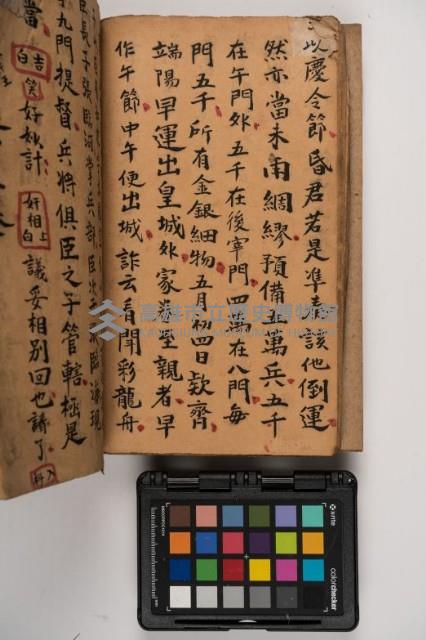 以慶令節昏君若是準奏該他倒運
然亦當未雨綢繆預備五萬兵五千
在午門外五千在後宰門四萬在八門每
門五千所有金銀細物五月初四日欵齊
端陽早運出皇城外家眷至親者早
作午節中午便出城詐云看鬧彩龍舟
九門提督兵將俱臣之子管轄極是
當 吉白 笑 好妙計 奸相上白 議妥相別回也請了
高雄市立歷史博物館
x-rite
colorchecker